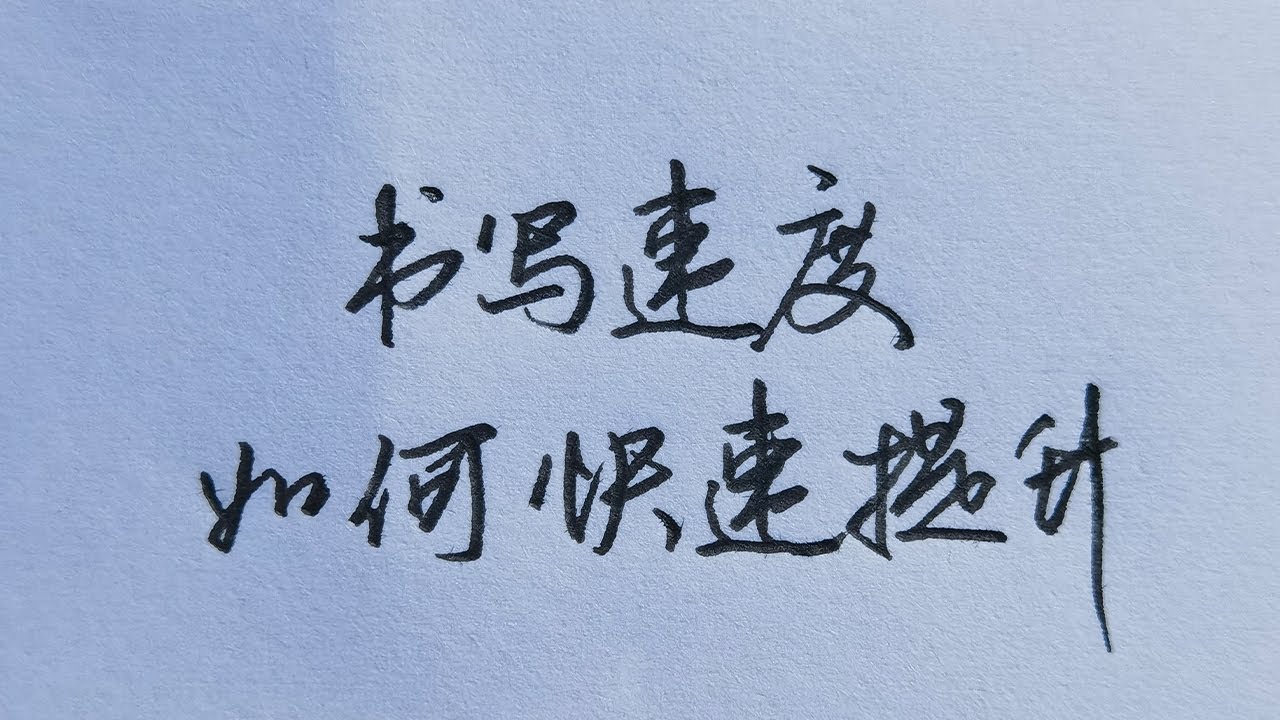 书写速度
如何快速提升